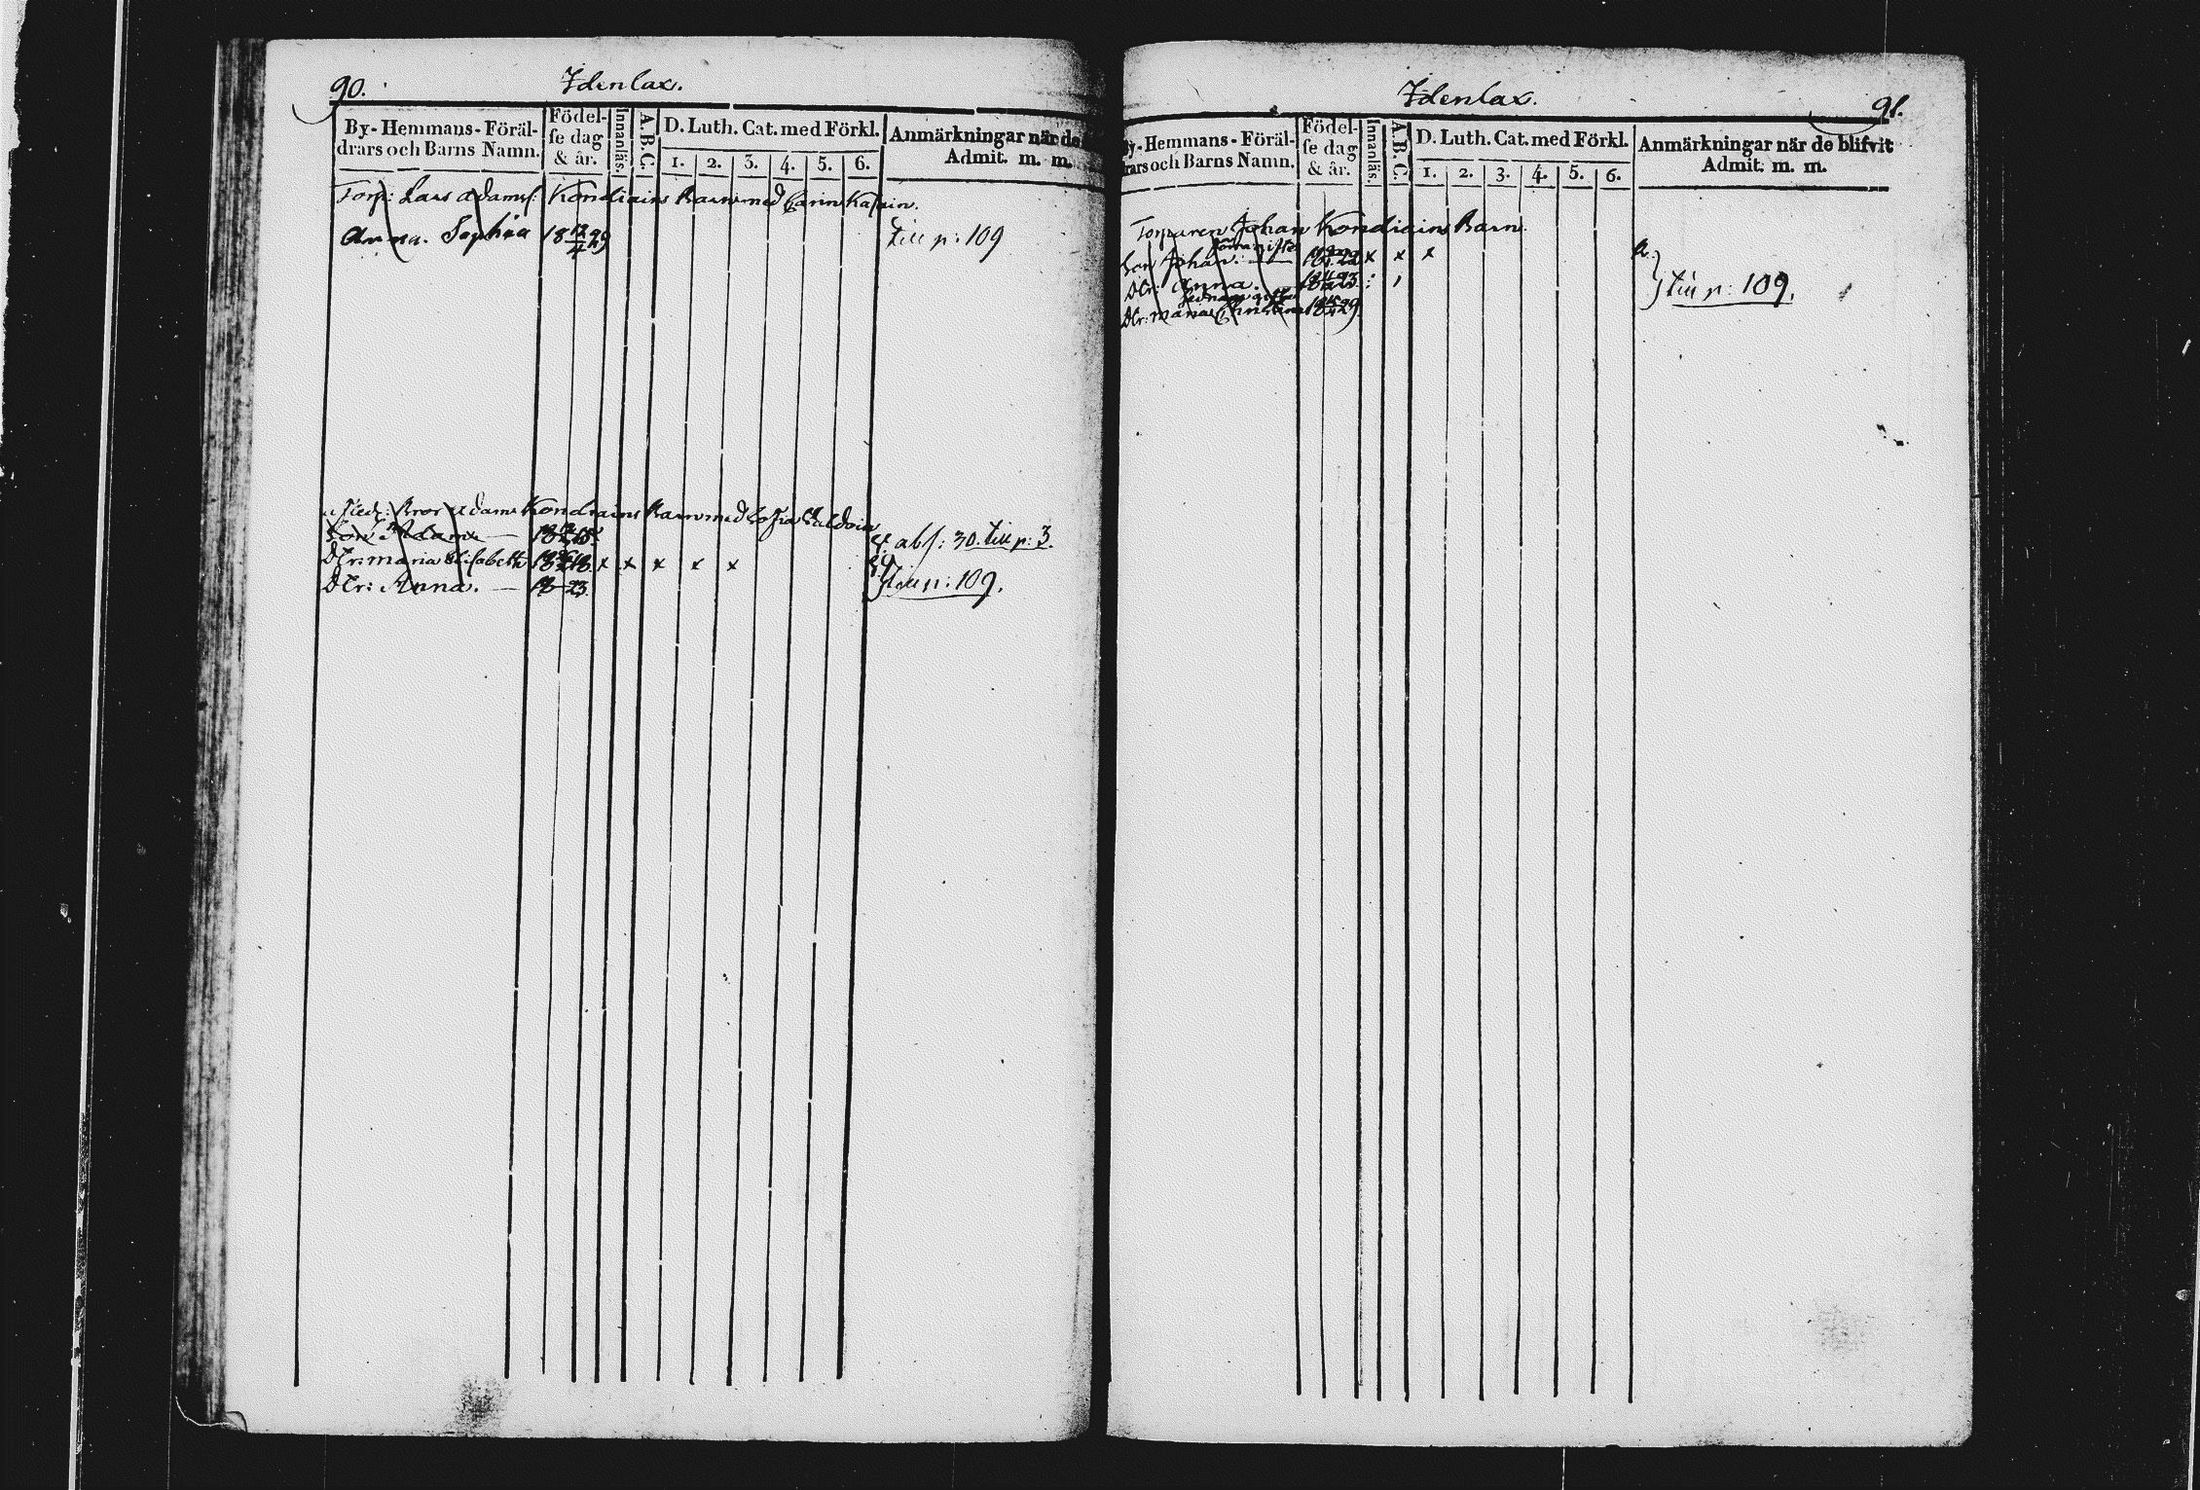 90. Idenlax.
By-Hemmans-Föräl-
drars och Barns Namn.
Födel-
se dag
& år.
Innanläs.
A.B.C.
D. Luth. Cat. med Förkl.
1. 2. 3. 4. 5. 6.
Anmärkningar när de
Admit. m. m.
Torp: Lars Adamss: Kondiains Barn med Carin
Anna. Sophia 18 12/4 29 till p: 109
Bror Adams Kondiains Barn med Sofia
Son Adam — abs: 30. till p: 3.
Dtr: Maria Elisabeth x x x x x
Dtr: Anna. — 18 23. till p: 109.
Idenlax. 91.
By-Hemmans-Föräl-
drars och Barns Namn.
Födel-
se dag
& år.
Innanläs.
A.B.C.
D. Luth. Cat. med Förkl.
1. 2. 3. 4. 5. 6.
Anmärkningar när de blifvit
Admit. m. m.
Torparen Johan Kondiains Barn.
Son Johan. x x x
Dtr: Anna. till p: 109.
Dtr: Maria Christina